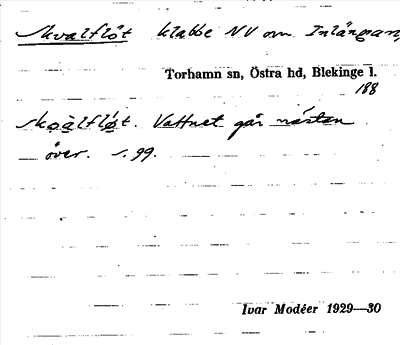 Skvalflöt klabbe NV om Inlängan,
Torhamn sn, Östra hd, Blekinge l.
188
skoàlflö́t. Vattnet går nästan
över. s. 99.
Ivar Modéer 1929—30